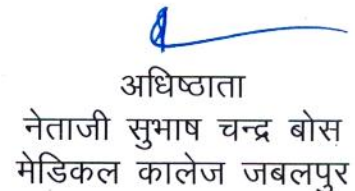 अधिष्ठाता
नेताजी सुभाष चन्द्र बोस
मेडिकल कालेज जबलपुर